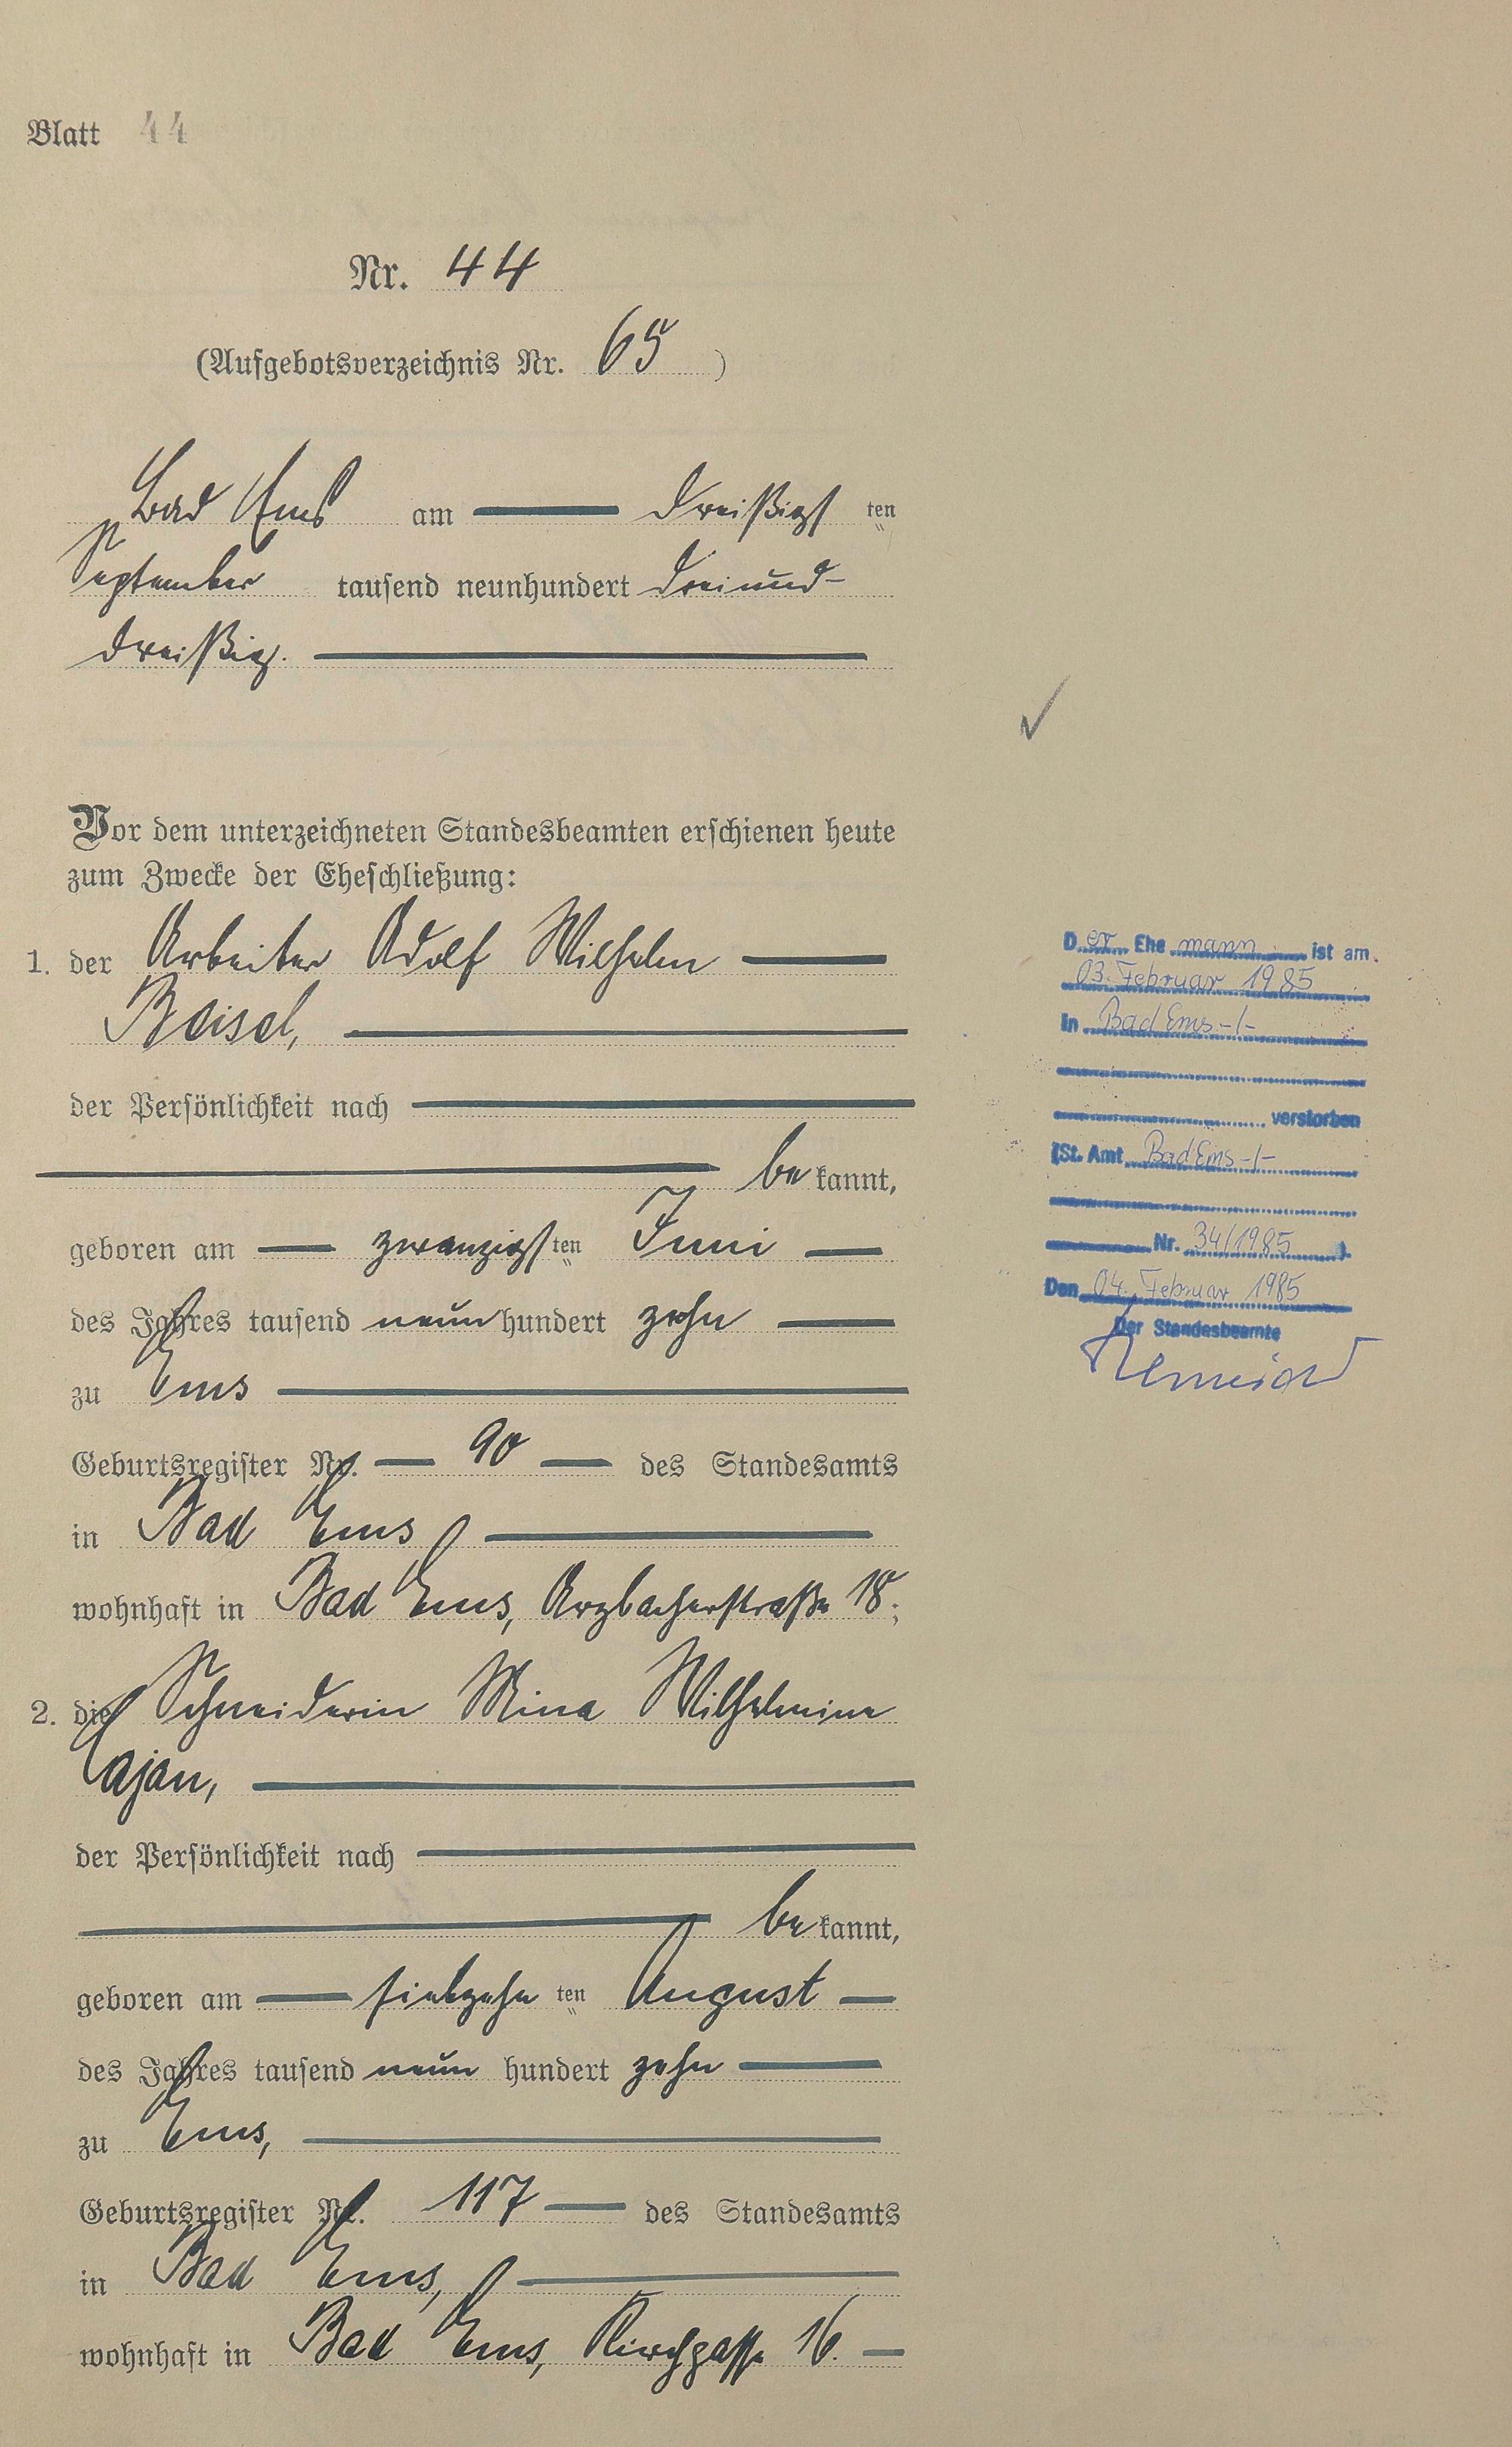 Blatt 44
Nr. 44
(Aufgebotsverzeichnis Nr. 65)
Bad Ems am dreißigsten
September tausend neunhundert dreiund-
dreißig.
Vor dem unterzeichneten Standesbeamten erschienen heute
zum Zwecke der Eheschließung:
1. der Arbeiter Adolf Wilhelm
Beisel,
der Persönlichkeit nach
bekannt,
geboren am zwanzigsten Juni
des Jahres tausend neunhundert zehn
zu Ems
Geburtsregister Nr. 90 des Standesamts
in Bad Ems,
wohnhaft in Bad Ems, Arzbacherstraße 18;
2. die Schneiderin Mina Wilhelmine
Cajan,
der Persönlichkeit nach
bekannt,
geboren am siebzehnten August
des Jahres tausend neun hundert zehn
zu Ems,
Geburtsregister Nr. 117 des Standesamts
in Bad Ems,
wohnhaft in Bad Ems, Kirchgasse 16.
Der Ehemann ist am
03. Februar 1985
in Bad Ems -/-
verstorben
(St. Amt Bad Ems -/-
Nr. 34/1985 )
Den 04. Februar 1985
Der Standesbeamte